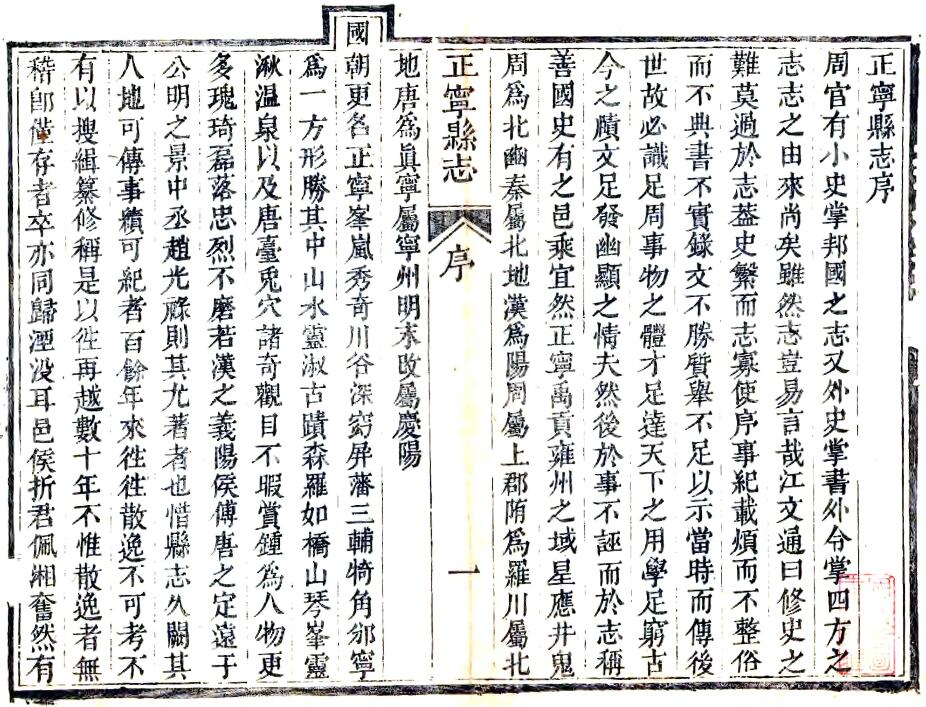 正寧縣志序
周官有小史掌邦國之志又外史掌書外令掌四方之
志志之由來尚矣雖然志豈易言哉江文通曰修史之
難莫過於志葢史繫而志寡使序事紀載煩而不整俗
而不典書不實錄文不勝質舉不足以示當時而傳後
世故必識足周事物之體才足達天下之用學足窮古
今之賾文足發幽顯之情夫然後於事不誣而於志稱
善國史有之邑乘宜然正寧禹貢雍州之域星應井鬼
周爲北豳秦屬北地漢爲陽周屬上郡隋爲羅川屬北
正寧縣志 序 一
地唐爲眞寧屬寧州明末改屬慶陽
國
朝更名正寧峯嵐秀奇川谷深窈屏藩三輔犄角邠寧
爲一方形勝其中山水靈淑古蹟森羅如橋山琴峯靈
湫溫泉以及唐臺兎穴諸奇觀目不暇賞鍾爲人物更
多瑰琦磊落忠烈不磨若漢之義陽侯傅唐之定遠于
公明之景中丞趙光祿則其尤著者也惜縣志久闕其
人地可傳事蹟可紀者百餘年來徃徃散逸不可考不
有以搜緝纂修稱是以徃再越數十年不惟散逸者無
稽卽僅存者卒亦同歸湮没耳邑侯折君佩湘奮然有